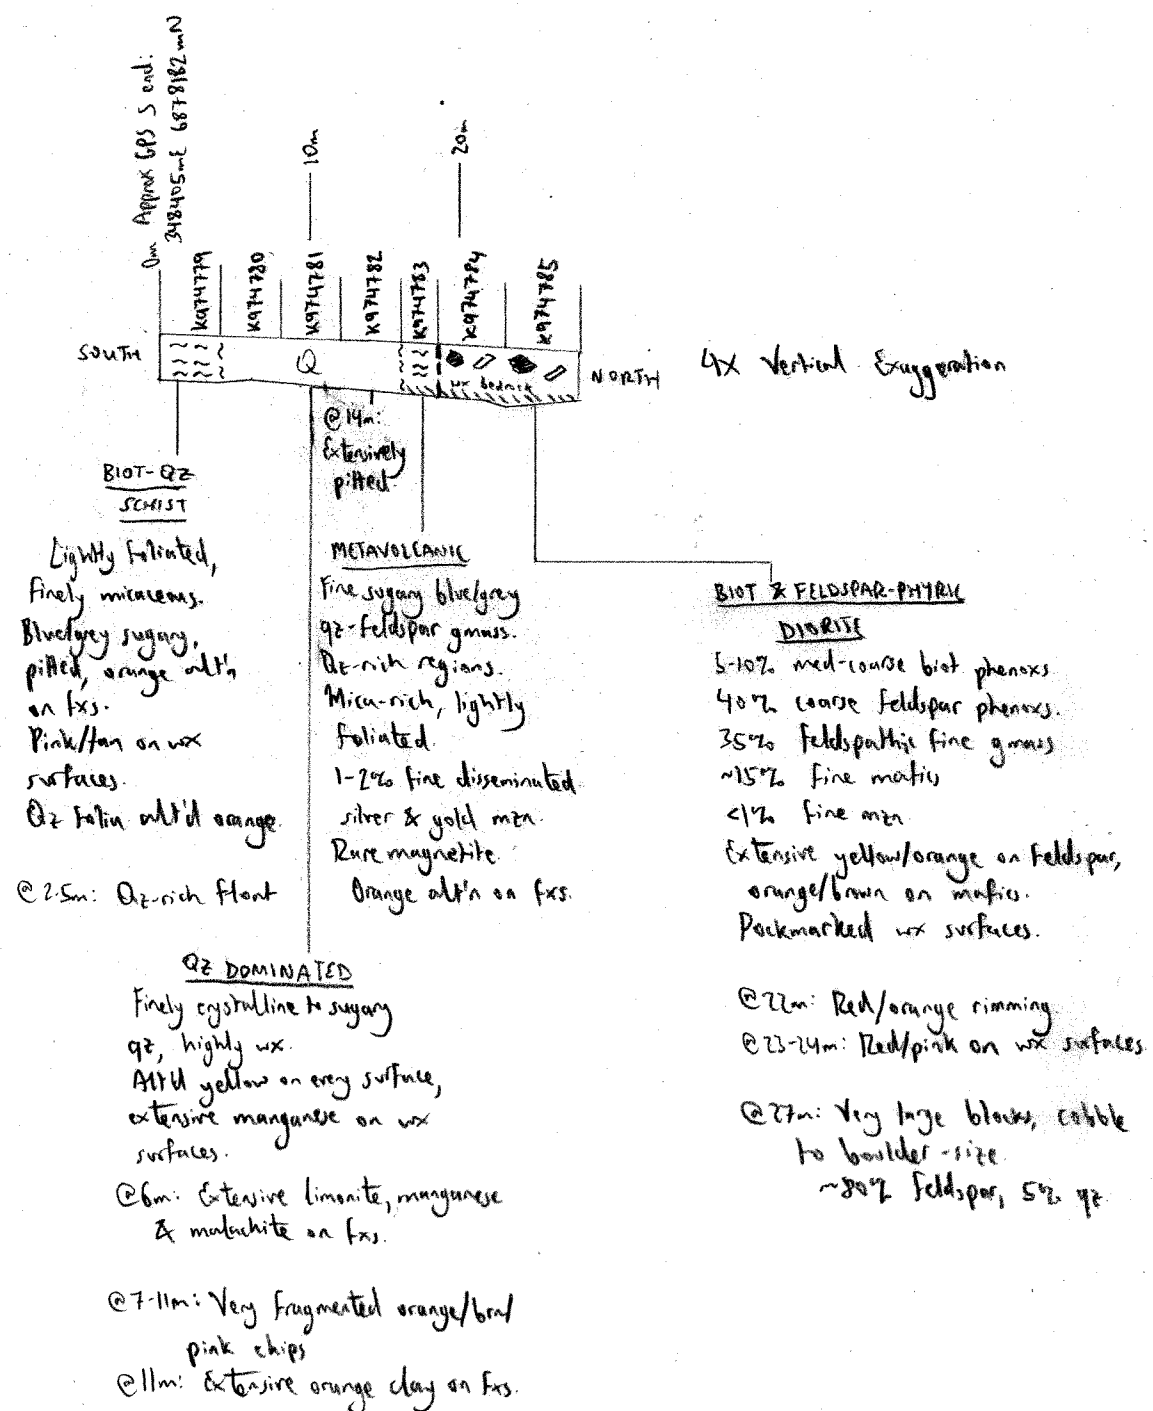 0m Approx GPS S end:
348405mE 6878182mN
10m
20m
K974779
K974780
K974781
K974782
K974783
K974784
K974785
SOUTH
Q
wx bedrock
NORTH
4X Vertical Exaggeration
@14m:
Extensively
pitted
BIOT-QZ
SCHIST
Lightly foliated,
finely micaceous.
Blue/grey sugary,
pitted, orange alt'n
on fxs.
Pink/tan on wx
surfaces.
Qz folia alt'd orange.
@2.5m: Qz-rich float
METAVOLCANIC
Fine sugary blue/grey
qz-feldspar gmass.
Qz-rich regions.
Mica-rich, lightly
foliated.
1-2% fine disseminated
silver & gold mzn.
Rare magnetite.
Orange alt'n on fxs.
BIOT & FELDSPAR-PHYRIC
DIORITE
5-10% med-coarse biot phenoxs
40% coarse feldspar phenoxs.
35% feldspathic fine gmass
~15% fine mafics
<1% fine mzn
Extensive yellow/orange on feldspar,
orange/brown on mafics.
Pockmarked wx surfaces.
@22m: Red/orange rimming
@23-24m: Red/pink on wx surfaces
@27m: Very large blocks, cobble
to boulder-size.
~80% feldspar, 5% qz
QZ DOMINATED
Finely crystalline to sugary
qz, highly wx.
Alt'd yellow on every surface,
extensive manganese on wx
surfaces.
@6m: Extensive limonite, manganese
& malachite on fxs.
@7-11m: Very fragmented orange/brn/
pink chips
@11m: Extensive orange clay on fxs.